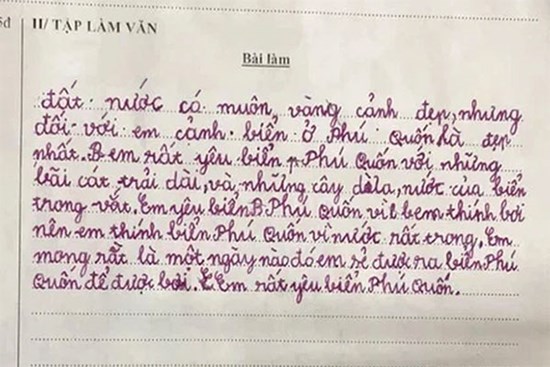 5đ
II/ TẬP LÀM VĂN
Bài làm
đất nước có muôn vàng cảnh đẹp, nhưng
đối với em cảnh biển ở Phú Quốn là đẹp
nhất. B em rất yêu biển p Phú Quốn với những
bãi cát trải dài, và những cây dừa, nước của biển
trong vắt. Em yêu biển B. Phú Quốn vì b em thính bơi
nên em thính biển Phú Quốn vì nước rất trong. Em
mong rằt là một ngày nào đó em sẽ được ra biển Phú
Quốn để được bơi. E Em rất yêu biển Phú Quốn.